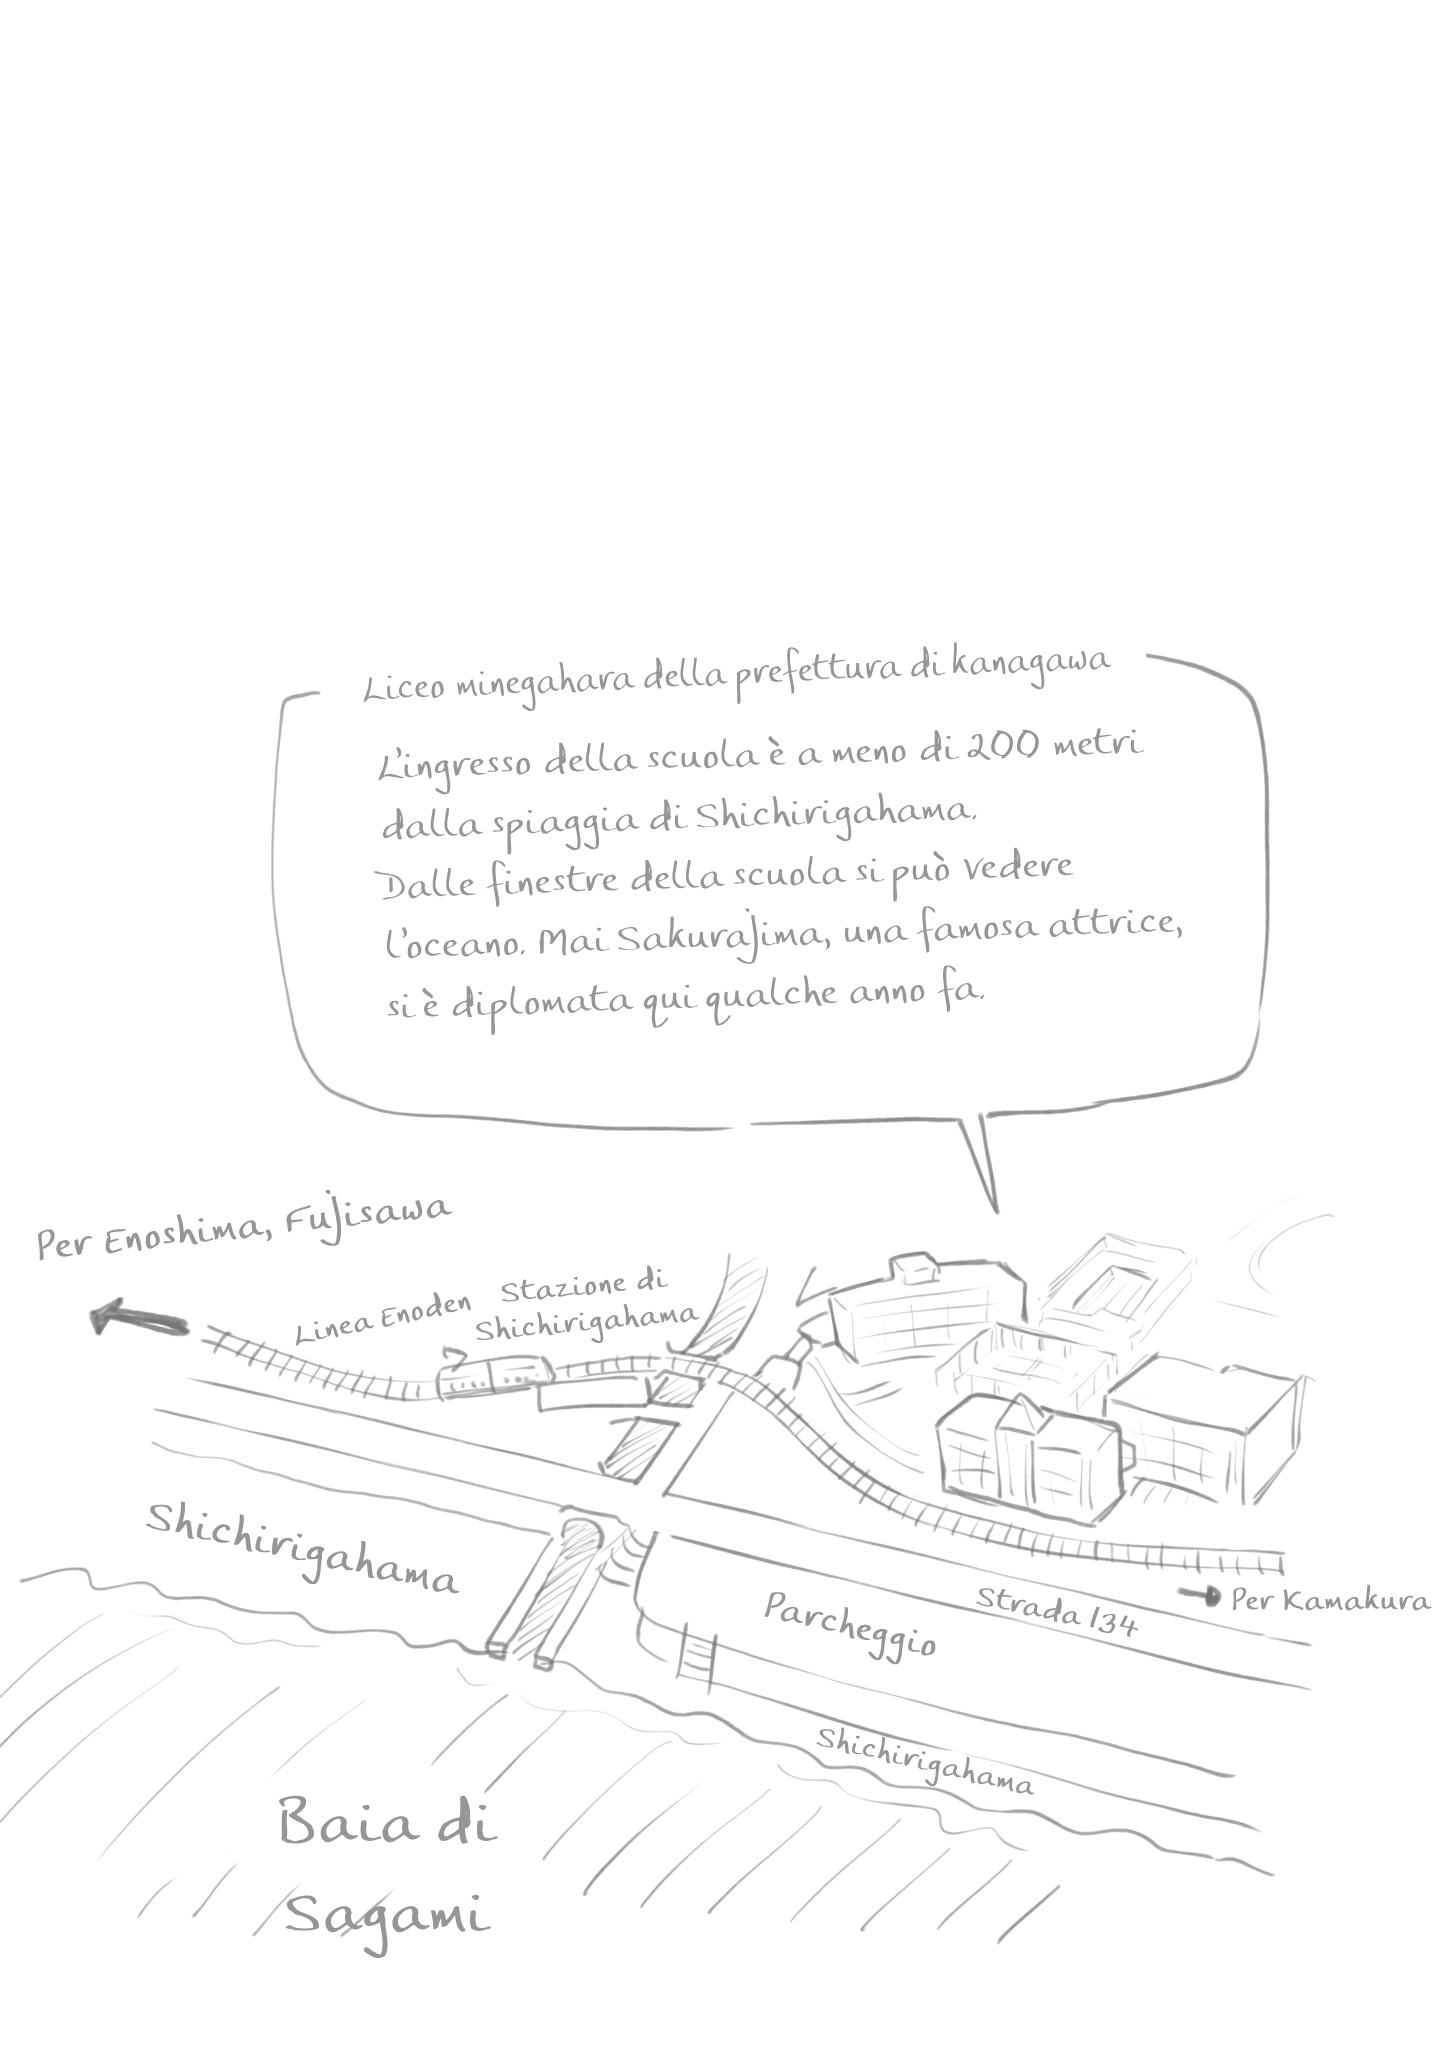 Liceo minegahara della prefettura di kanagawa
L'ingresso della scuola è a meno di 200 metri
dalla spiaggia di Shichirigahama.
Dalle finestre della scuola si può vedere
l'oceano. Mai Sakurajima, una famosa attrice,
si è diplomata qui qualche anno fa.
Per Enoshima, Fujisawa
Linea Enoden
Stazione di
Shichirigahama
Shichirigahama
Strada 134
Per Kamakura
Parcheggio
Shichirigahama
Baia di
Sagami